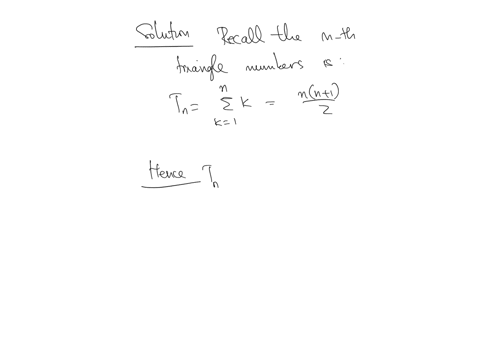 Solution Recall the n-th
triangle numbers is:
T_n = \sum_{k=1}^{n} k = \frac{n(n+1)}{2}
Hence T_n